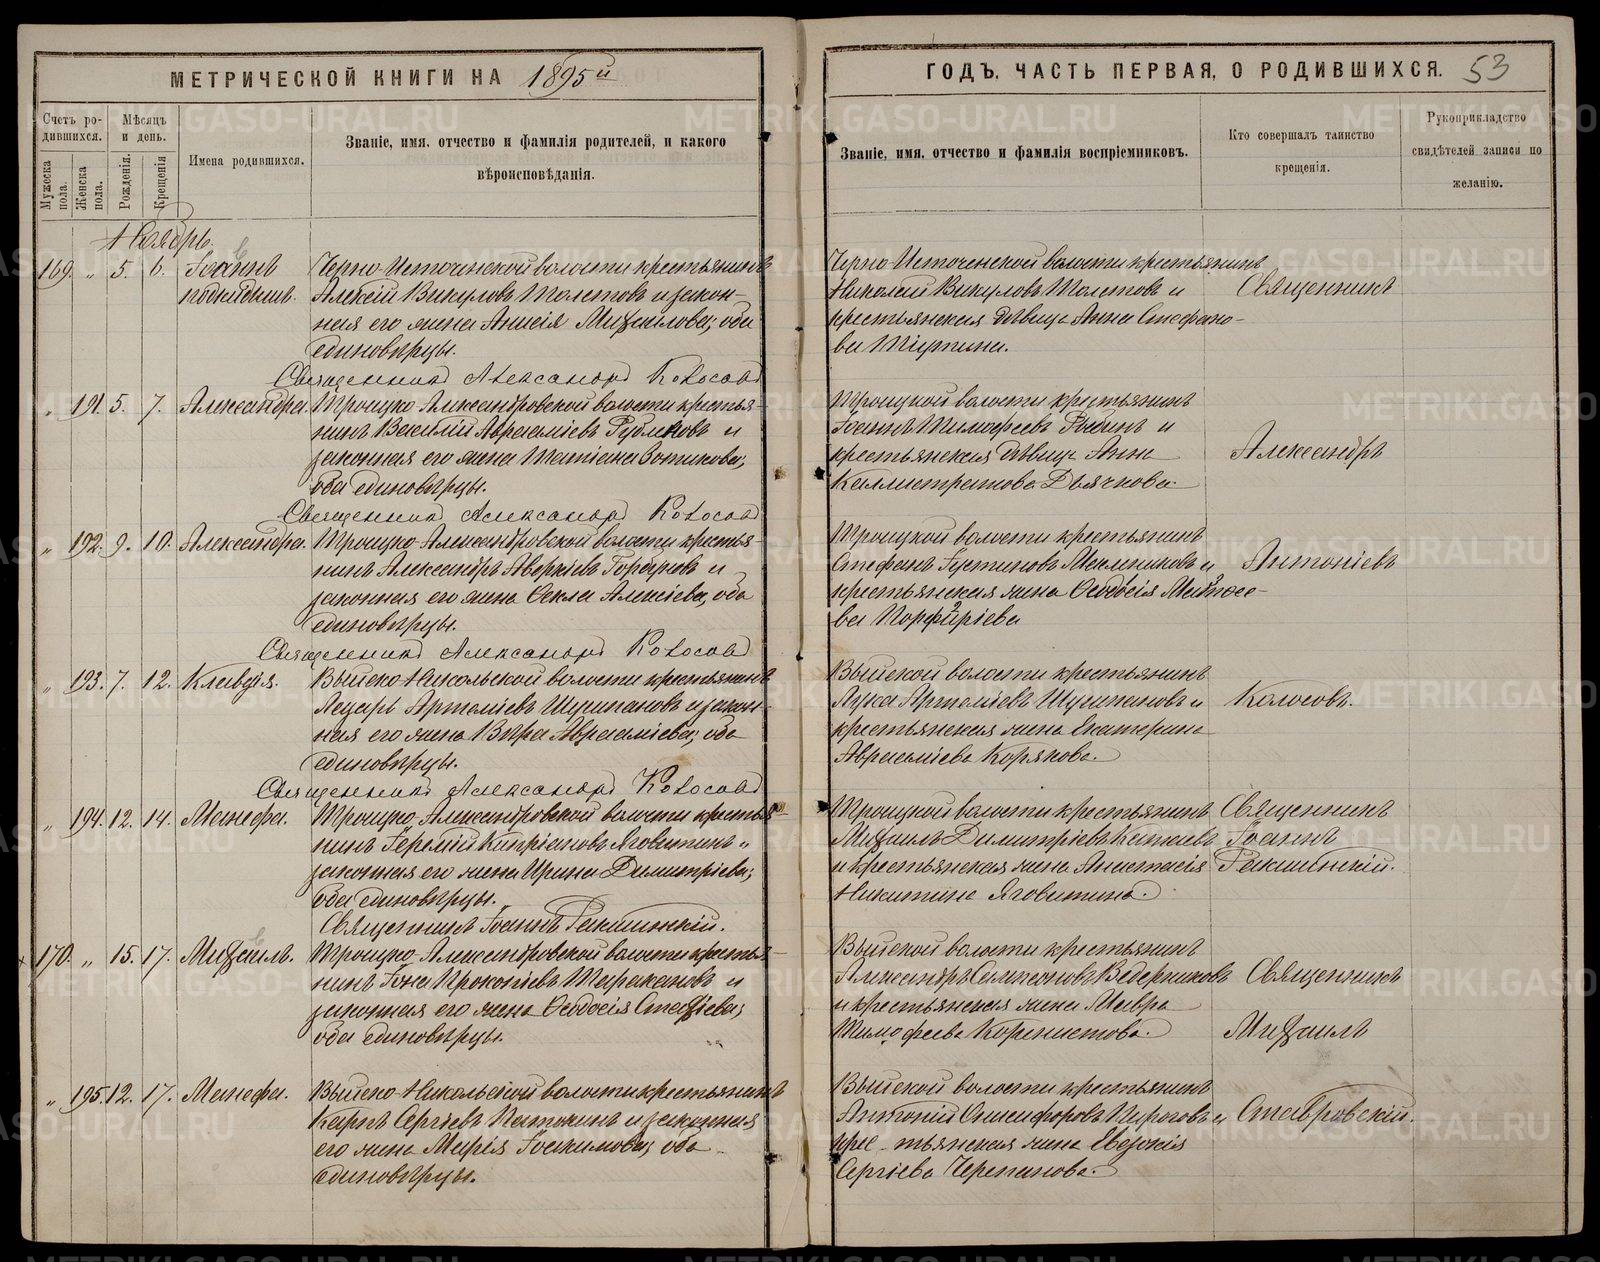 МЕТРИЧЕСКОЙ КНИГИ НА 1895й
ГОДЪ, ЧАСТЬ ПЕРВАЯ, О РОДИВШИХСЯ. 53
Счетъ ро-
дившихся.
Мѣсяцъ
и день.
Мужеска
пола.
Женска
пола.
Рожденія.
Крещенія
Имена родившихся.
Званіе, имя, отчество и фамилія родителей, и какого
вѣроисповѣданія.
Званіе, имя, отчество и фамилія воспріемниковъ.
Кто совершалъ таинство
крещенія.
Рукоприкладство
свидѣтелей записи по
желанію.
Ноябрь.
169. „ 5. 6. Іоаннъ
подкидышъ.
Черно-Источинской волости крестьянинъ
Алексій Викуловъ Толстовъ и закон-
ная его жена Анисія Михаилова, оба
единовѣрцы.
Священникъ Александръ Колосовъ
Черно-Источенской волости крестьянинъ
Николай Викуловъ Толстовъ и
крестьянская дѣвица Анна Стефано-
ва
Священникъ
„ 191. 5. 7. Александра.
Троицко-Александровской волости крестья-
нинъ Василій Авраамiевъ и
законная его жена Татіана Зотикова,
оба единовѣрцы.
Священникъ Александръ Колосовъ
Троицкой волости крестьянинъ
Іоаннъ Тимофеевъ и
крестьянская дѣвица Анна
Каллистратова Дьячкова.
Александръ
„ 192. 9. 10. Александра.
Троицко-Александровской волости крестья-
нинъ Александръ Аверкіевъ Горбуновъ и
законная его жена Ѳекла Алексіева, оба
единовѣрцы.
Священникъ Александръ Колосовъ
Троицкой волости крестьянинъ
Стефанъ Густиновъ и
крестьянская жена Ѳеодосія
ва Порфиріева
Антоніевъ
„ 193. 7. 12. Клавдія.
Выйско-Никольской волости крестьянинъ
Лазарь Артеміевъ и закон-
ная его жена Вѣра Авраамiева, оба
единовѣрцы.
Священникъ Александръ Колосовъ
Выйской волости крестьянинъ
Лука Артеміевъ и
крестьянская жена Екатерина
Авраамiева Корякова.
Колосовъ.
„ 194. 12. 14. Манефа.
Троицко-Александровской волости крестья-
нинъ Іеремій Кипріановъ Яговитинъ и
законная его жена Ирина Димитріева,
оба единовѣрцы.
Священникъ Іоаннъ
Троицкой волости крестьянинъ
Михаилъ Димитріевъ
и крестьянская жена Анастасія
Никитина Яговитина.
Священникъ
Іоаннъ
170. „ 15. 17. Михаилъ.
Троицко-Александровской волости крестья-
нинъ Іона Прокопіевъ Таракановъ и
законная его жена Ѳеодосія Стахіева,
оба единовѣрцы.
Выйской волости крестьянинъ
Александръ Самсоновъ Ведерниковъ
и крестьянская жена Мавра
Тимофеева
Священникъ
Михаилъ
„ 195. 12. 17. Манефа.
Выйско-Никольской волости крестьянинъ
Карпъ Сергіевъ и законная
его жена Марія Іоакимова, оба
единовѣрцы.
Выйской волости крестьянинъ
Антоній Онисифоровъ Пироговъ и
крестьянская жена Евдокія
Сергіева Черепанова.
Ставровскій.
METRIKI.GASO-URAL.RU